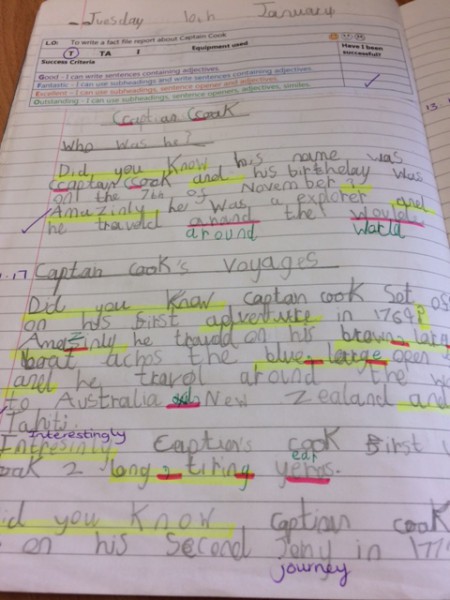 Tuesday 10th January
LO: To write a fact file report about Captain Cook
T TA I Equipment used Have I been successful?
Success Criteria
Good - I can write sentences containing adjectives
Fantastic - I can use subheadings and write sentences containing adjectives
Excellent - I can use subheadings, sentence opener and adjectives
Outstanding - I can use subheadings, sentence openers, adjectives, similes
Ccaptian Ccook
Who was he?
Did you know his name was
Ccaptain Ccook and his birthday was
on the 7th of November?
Amazinly he was a explorer and
he traveld anand the
around world
Captan cook's Voyages
Did you know captan cook Set
on his first adventure in 1768?
Amazinly he travld on his brown,
boat achos the blue, large open
and he travol around the
to Australia New Zealand and
Tahiti.
Interestingly
Intresinly Captian's cook first
2 long, tiring yeras.
ear
did you know captian cook
on his second Jony in
journey